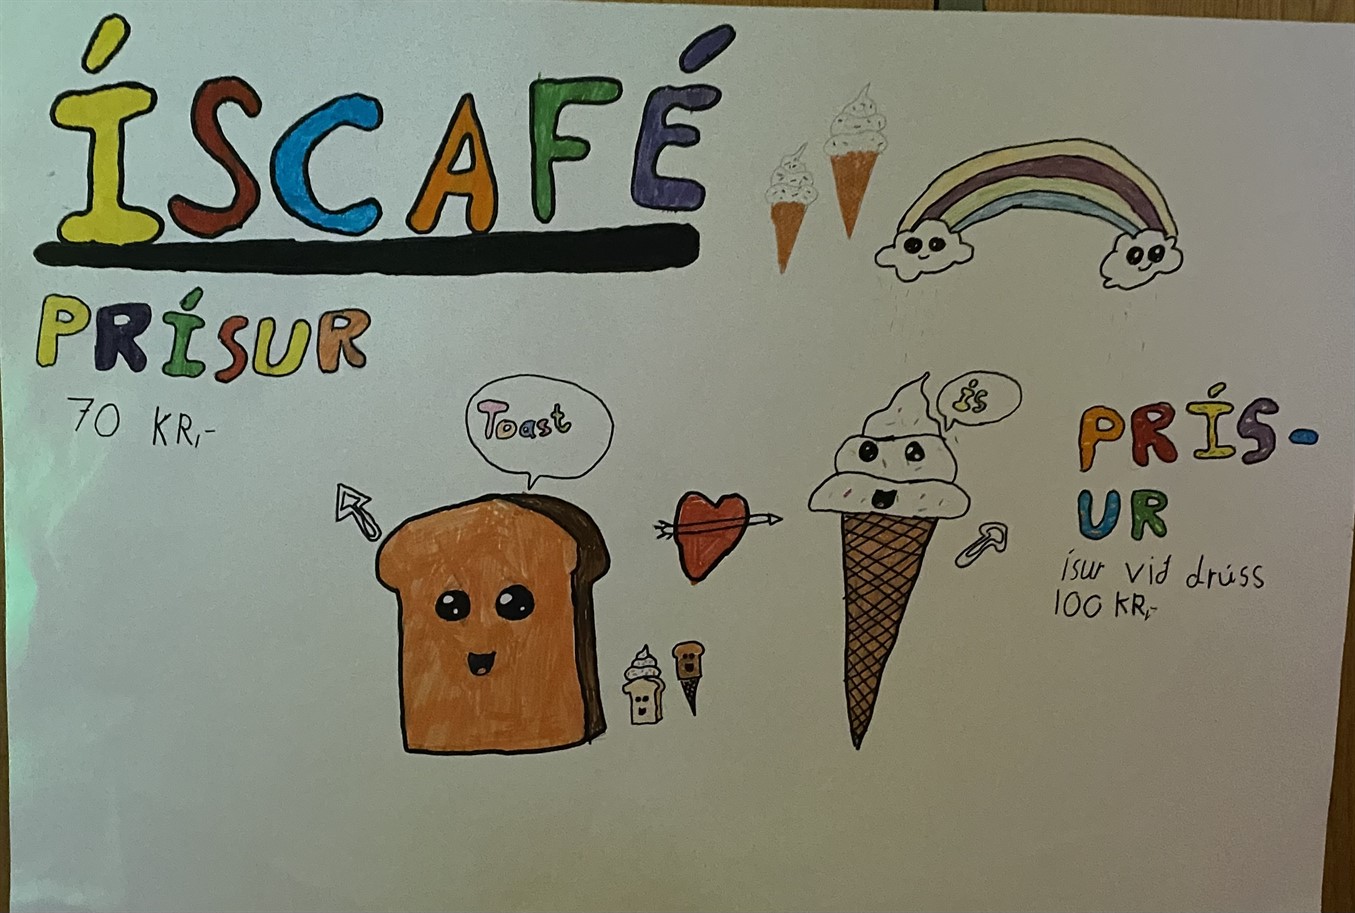 ÍSCAFÉ
PRÍSUR
70 KR,-
Toast
ís
PRÍS-
UR
ísur við drúss
100 KR,-